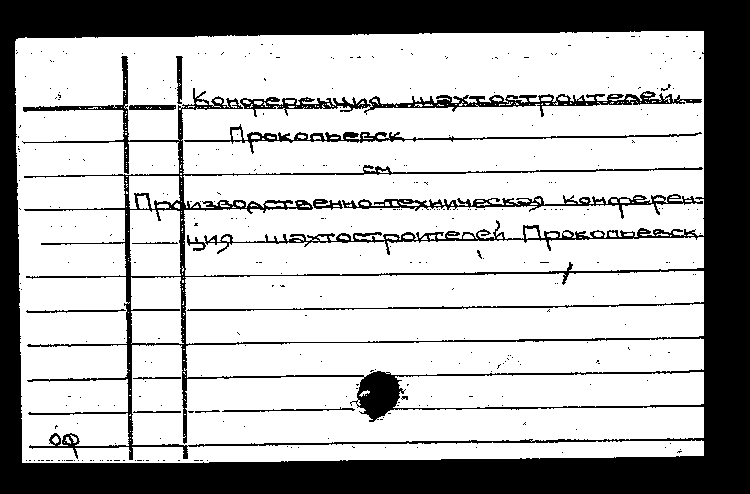 Конференция шахтостроителей.
Прокопьевск.
см
Производственно-техническая конферен-
ция шахтостроителей Прокопьевск.
оф